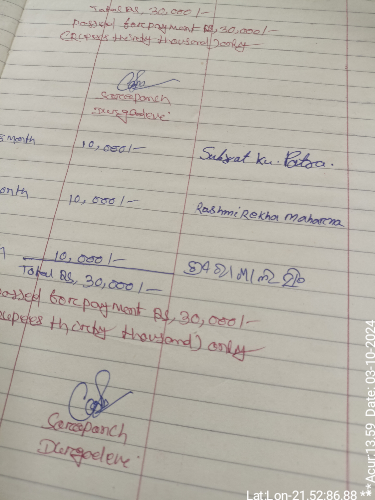 Total Rs, 30,000/-
passed for payment Rs, 30,000/-
(Rupees thirty thousand) only
Sarapanch
Durgadevi
month 10,000/- Subrat Ku. Patra.
onth 10,000/- Rashmi Rekha Maharana
10,000/-
Total Rs, 30,000/-
passed for payment Rs, 30,000/-
upees thirty thousand) only
Sarapanch
Durgadevi
Lat:Lon-21.52:86.88 **Acur:13.59 Date: 03-10-2024